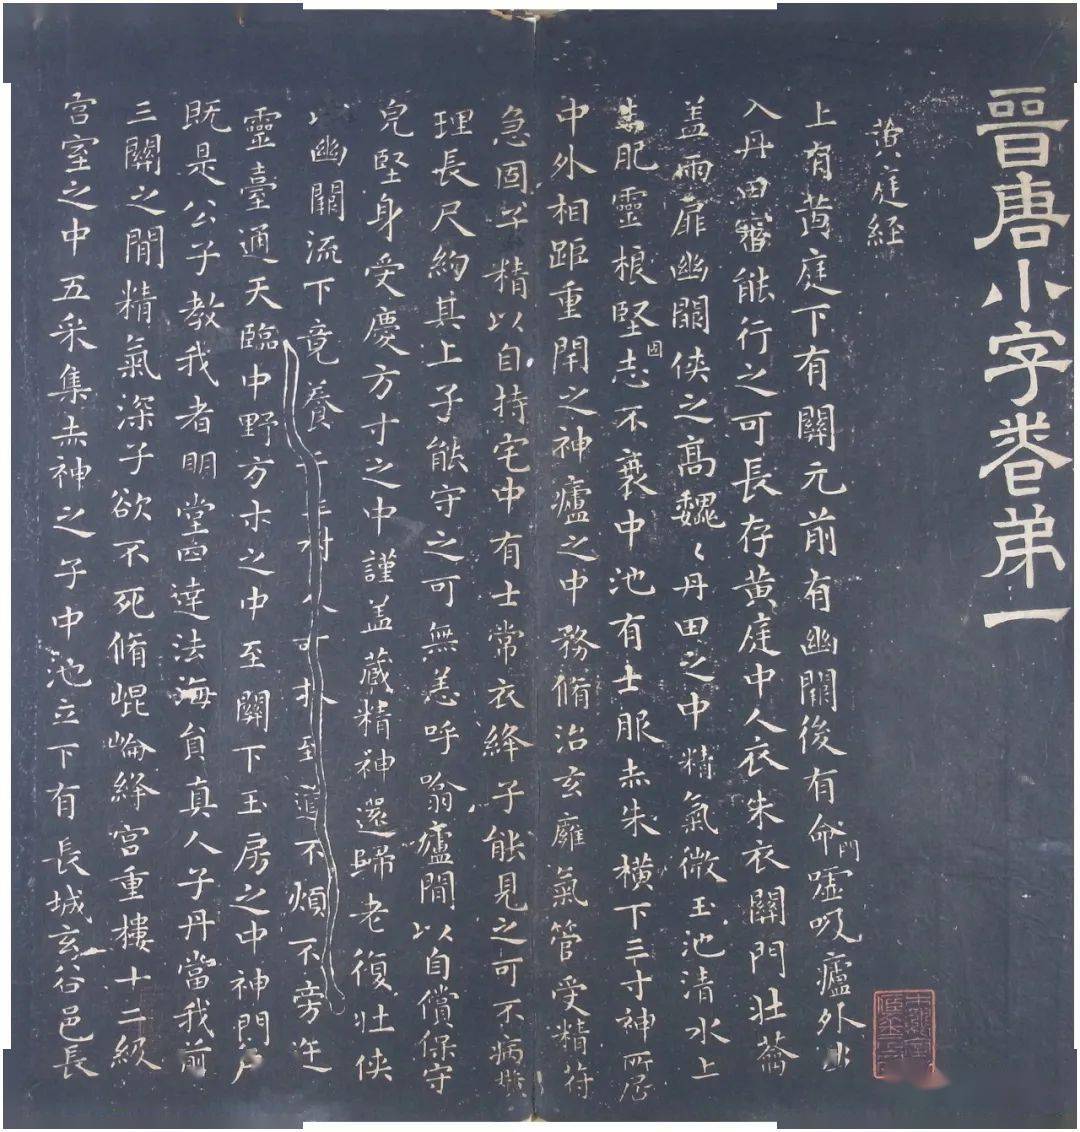 晉唐小字卷弟一
黄庭経
上有黄庭下有關元前有幽闕後有命門噓吸廬外出
入丹田審能行之可長存黄庭中人衣朱衣關門壮蘥
盖兩扉幽闕侠之髙魏〻丹田之中精氣微玉池清水上
生肥靈根堅固志不衰中池有士服赤朱橫下三寸神所居
中外相距重閉之神廬之中務脩治玄廱氣管受精苻
急固子精以自持宅中有士常衣絳子能見之可不病橫
理長尺約其上子能守之可無恙呼噏廬間以自償保守
皃堅身受慶方寸之中謹盖藏精神還歸老復壮侠
以幽闕流下竟養子玉樹 可扙至道不煩不旁迕
靈臺通天臨中野方寸之中至關下玉房之中神門户
既是公子教我者明堂四達法海負真人子丹當我前
三關之間精氣深子欲不死脩崐崘絳宮重樓十二級
宮室之中五采集赤神之子中池立下有長城玄谷邑長